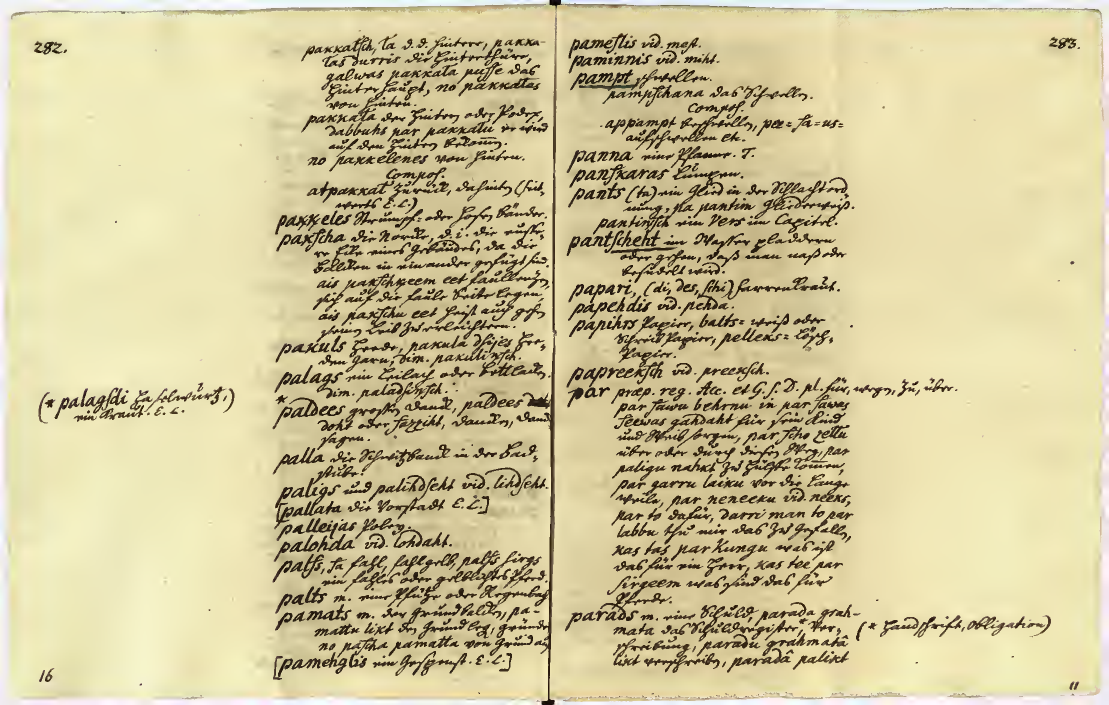 282.
pakkatsch, ta d. d. hintere, pakka-
tas durris die Hinterthüre,
galwas pakkata pusse das
Hinter Haupt, no pakkatas
von hinten.
pakkata der Hinter oder Podex,
dabbuhs par pakkatu er wird
auf den Hintern bekomen.
no pakkelenes von hinten.
Compos.
atpakkat zurück, dahinten (hint-
werts E. L.)
pakkeles Strumpf- oder Hosen bänder.
pakscha die Norcke, d. i. die eußer-
re Eke eines Gebäudes, da die
Balcken in einander gefügt sind.
ais pakschkeem eet faullentzen,
sich auf die faule Seite legen,
ais pakschu eet heist auch gehn
seinen Leib zu erleichtern.
pakuls Heede, pakula dsijes Hee-
den garn, dim. pakulinsch.
palags ein Leilach oder Bettlaken.
dim. paladsinsch.
*
(* palagsdi Haselwurtz,)
ein Kraut. E. L.
paldees großen danck, paldees
doht oder sazziht, dancken, danck
sagen.
palla die Schwitzbanck in der Bad-
stube.
paligs und palihdseht vid. lihdseht.
[pallata die Vorstadt E. L.]
palleijas Poley.
palohda vid. lohdaht.
palss, sa fahl, fahlgelb, palss sirgs
ein fahles oder gelblichtes Pferd.
palts m. eine Pfütze oder Regenbach
pamats m. der Grundbalcken, pa-
mattu likt den Grund leg, gründen
no pascha pamatta von Grund auf
[pamehglis ein Gespenst. E. L.]
16
283.
pameslis vid. mest.
paminnis vid. miht.
pampt schwellen.
pampschana das Schwellen.
Compos.
appampt beschwellen, pee= sa= us=
aufschwellen etc.
panna eine Pfanne. T.
panskaras Lumpen.
pants (ta) ein Glied in der Schlachtord
nung, pa pantim Gliederweiß.
pantinsch ein Vers im Capitel.
pantscheht im Wasser pladdern
oder gehen, daß man naß oder
besudelt wird.
papari, (di, des, schi) Farrenkraut.
papehdis vid. pehda.
papihrs Papier, balts= weiß oder
Schreib Papier, pelleks= Lösch-
Papier.
papreeksch vid. preeksch.
par præp. reg. Acc. et G. s. D. pl. für, wegen, zu, über.
par sawu behrnu in par sawas
seewas gahdaht für sein Kind
und Weib sorgen, par scho zellu
über oder durch diesen Weg, par
paligu nahkt zu Hülffe komen,
par garru laiku vor die lange
weile, par neneeku vid. neeks,
par to dafür, darri man to par
labbu thu mir das zu Gefallen,
kas tas par kungu was ist
das für ein Herr, kas tee par
sirgeem was sind das für
Pferde.
parads m. eine Schuld, parada grah-
mata das Schuldregister,* Ver-
schreibung, paradu grahmatâ
likt verschreiben, paradâ palikt
(* Handschrift, obligation)
11